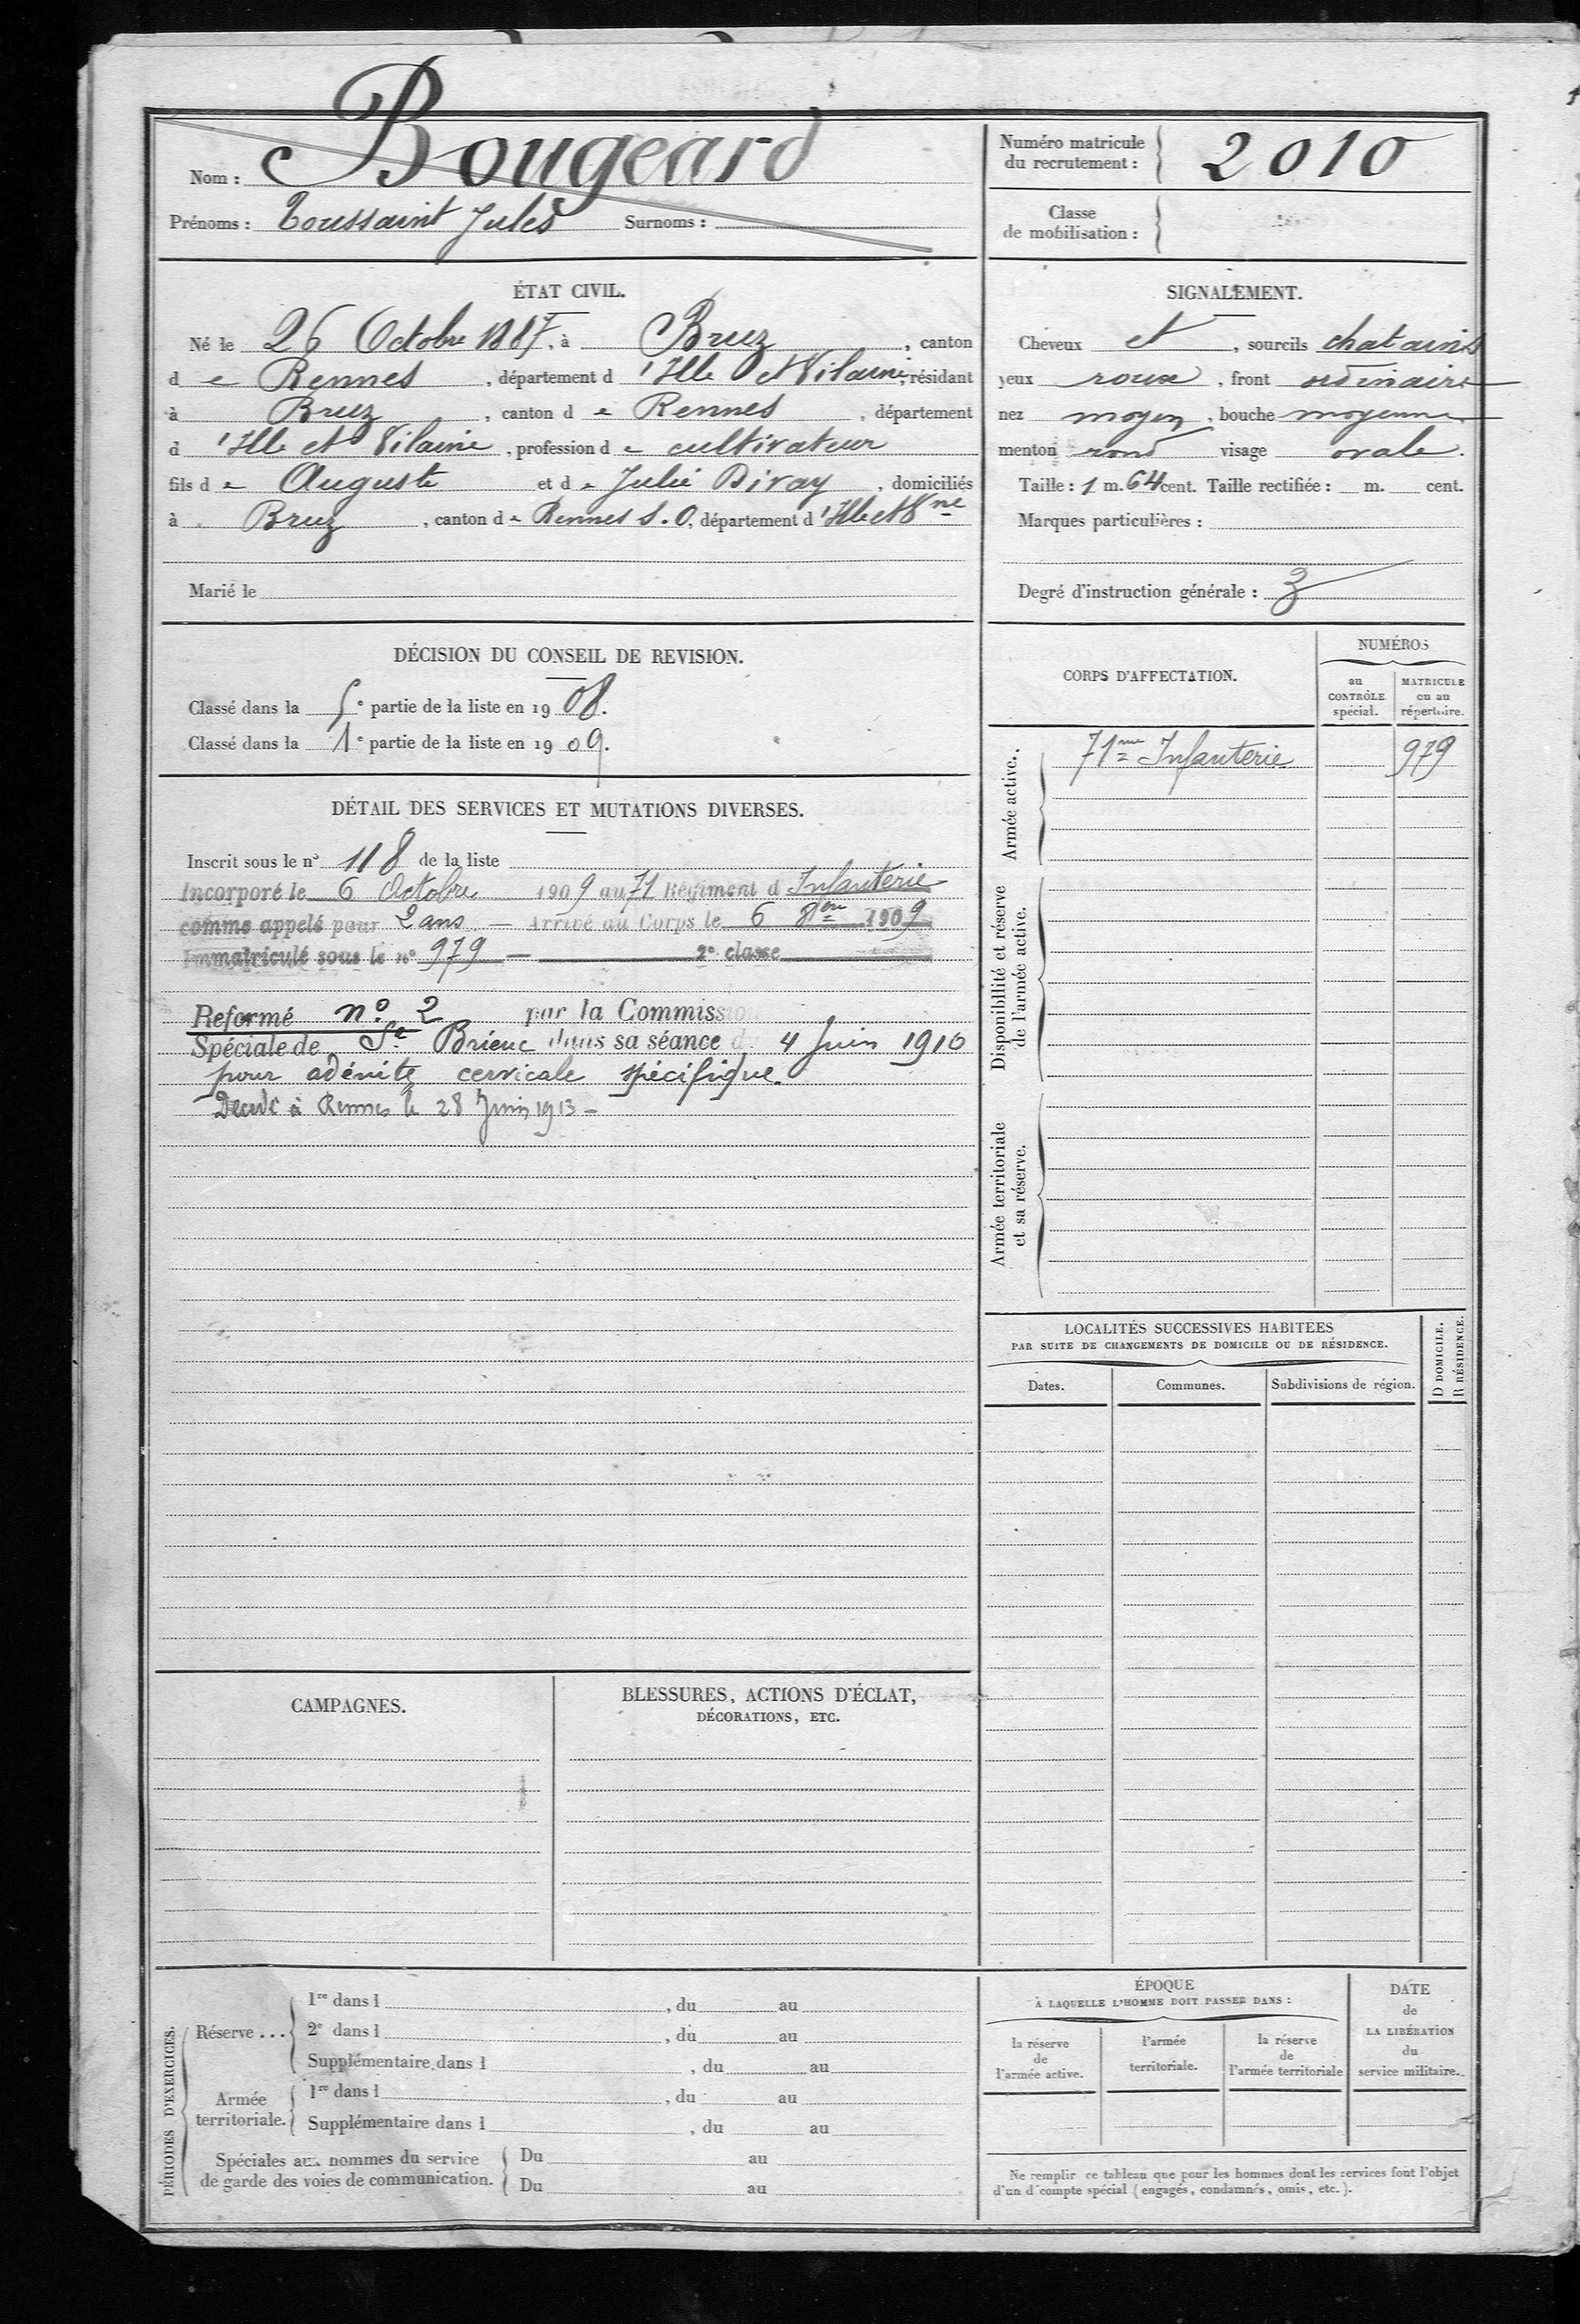 Nom : Bougeard
Prénoms : Toussaint Jules Surnoms :
Numéro matricule
du recrutement : 2010
Classe
de mobilisation :
ÉTAT CIVIL.
Né le 26 Octobre 1887, à Bruz, canton
de Rennes, département d'Ille et Vilaine, résidant
à Bruz, canton de Rennes, département
d'Ille et Vilaine, profession de cultivateur
fils de Auguste et de Julie Divay, domiciliés
à Bruz, canton de Rennes S.O, département d'Ille et Vne
Marié le
SIGNALEMENT.
Cheveux et, sourcils chatains
yeux roux, front ordinaire
nez moyen, bouche moyenne
menton rond visage ovale.
Taille : 1 m. 64 cent. Taille rectifiée : m. cent.
Marques particulières :
Degré d'instruction générale : 3
DÉCISION DU CONSEIL DE REVISION.
Classé dans la 5e partie de la liste en 1908.
Classé dans la 1e partie de la liste en 1909.
DÉTAIL DES SERVICES ET MUTATIONS DIVERSES.
Inscrit sous le n° 118 de la liste
Incorporé le 6 Octobre 1909 au 71 Régiment d Infanterie
comme appelé pour 2 ans — Arrivé au Corps le 6 8bre 1909
Immatriculé sous le n° 979 — 2e classe
Reformé n° 2 par la Commission
Spéciale de St Brieuc dans sa séance d. 4 Juin 1910
pour adénite cervicale spécifique.
Decedé à Rennes le 28 Juin 1913 -
CORPS D'AFFECTATION.
NUMÉROS
au
CONTRÔLE
spécial.
MATRICULE
ou au
répertoire.
Armée active..
71me Infanterie 979
Disponibilité et réserve
de l'armée active.
Armée territoriale
et sa réserve.
LOCALITÉS SUCCESSIVES HABITEES
PAR SUITE DE CHANGEMENTS DE DOMICILE OU DE RÉSIDENCE.
Dates. Communes. Subdivisions de région.
D DOMICILE.
R RÉSIDENCE.
CAMPAGNES.
BLESSURES, ACTIONS D'ÉCLAT,
DÉCORATIONS, ETC.
PÉRIODES D'EXERCICES.
Réserve ...
1re dans l , du au
2e dans l , du au
Supplémentaire dans l , du au
Armée
territoriale.
1re dans l , du au
Supplémentaire dans l , du au
Spéciales aux hommes du service
de garde des voies de communication.
Du au
Du au
ÉPOQUE
À LAQUELLE L'HOMME DOIT PASSER DANS :
la réserve
de
l'armée active.
l'armée
territoriale.
la réserve
de
l'armée territoriale
DATE
de
LA LIBÉRATION
du
service militaire.
Ne remplir ce tableau que pour les hommes dont les services font l'objet
d'un décompte spécial (engagés, condamnés, omis, etc.).